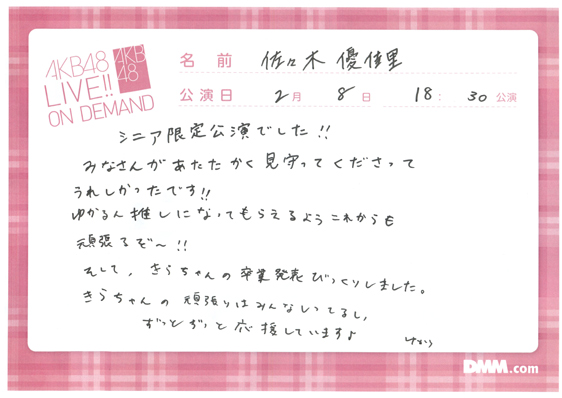 AKB48
LIVE!!
ON DEMAND
AKB
48
名 前 佐々木 優佳里
公演日 2月 8日 18:30公演
シニア限定公演でした!!
みなさんがあたたかく見守ってくださって
うれしかったです!!
ゆかるん推しになってもらえるようこれからも
頑張るぞ〜!!
そして、きらちゃんの卒業発表びっくりしました。
きらちゃんの頑張りはみんなしってるし、
ずっとずっと応援していますよ
ゆかり
DMM.com